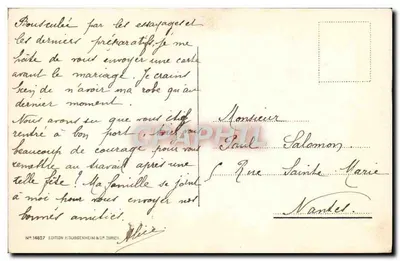 Bousculée par les essayages et
les derniers préparatifs, je me
hâte de vous envoyer une carte
avant le mariage. Je crains
bien de n'avoir ma robe qu'au
dernier moment.
Nous avons su que vous étiez
rentré à bon port
beaucoup de courage pour vous
remettre au travail après une
telle fête! Ma famille se joint
à moi pour vous envoyer nos
bonnes amitiés.
Alice
Monsieur
Paul Salomon
5 Rue Sainte Marie
Nantes
No 14657